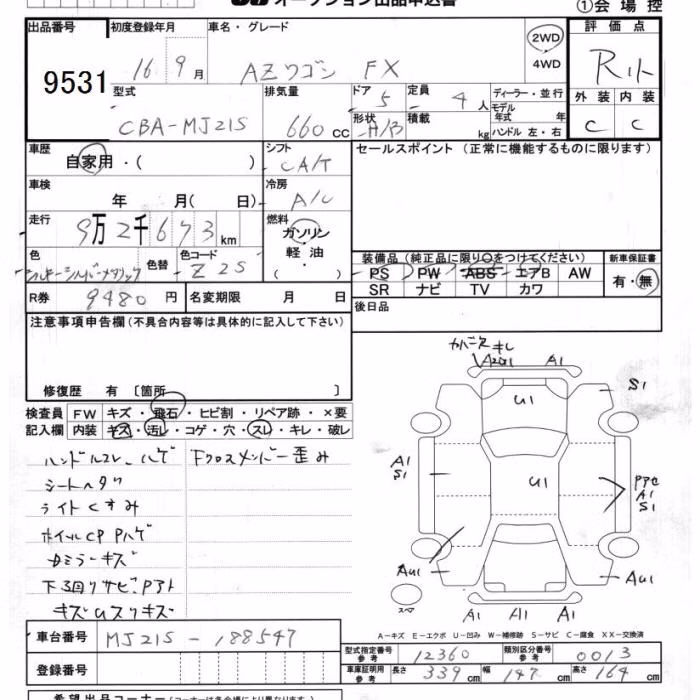 オークション出品申込書
①会場控
出品番号
9531
初度登録年月
16 9月
車名・グレード
AZワゴン FX
2WD
4WD
評価点
R
外装 内装
C C
型式
CBA-MJ21S
排気量
660 cc
ドア
5
定員
4人
形状
H/B
積載
kg
ディーラー・並行
モデル年式 年
ハンドル 左・右
車歴
自家用・( )
シフト
CA/T
セールスポイント (正常に機能するものに限ります)
車検
年 月( 日)
冷房
A/C
走行
9万2千673km
燃料
ガソリン
軽油
色
シルキーシルバーメタリック
色替
色コード
Z2S
装備品 (純正品に限り○をつけてください)
PS PW ABS エアB AW
SR ナビ TV カワ
新車保証書
有・無
R券
9480円
名変期限 月 日
後日品
注意事項申告欄 (不具合内容等は具体的に記入して下さい)
修復歴 有 〔箇所 〕
検査員
記入欄
FW キズ・飛石・ヒビ割・リペア跡・×要
内装 キズ・汚レ・コゲ・穴・スレ・キレ・破レ
ハンドルスレ、ハゲ
Fクロスメンバー歪み
シートヘタリ
ライトくすみ
ホイルCP Pハゲ
カミラーキズ
下回りサビ、Pアト
キズUスリキズ
A1
U1
S1
A1
S1
U1
A1
S1
AU1
AU1
スペア
A1 A1 A1
A-キズ E-エクボ U-凹み W-補修跡 S-サビ C-腐食 XX-交換済
車台番号
MJ21S-188547
登録番号
型式指定番号
参考
12360
類別区分番号
参考
0013
車庫証明用
参考
長さ 339cm 幅 147cm 高さ 164cm
希望出品コーナー